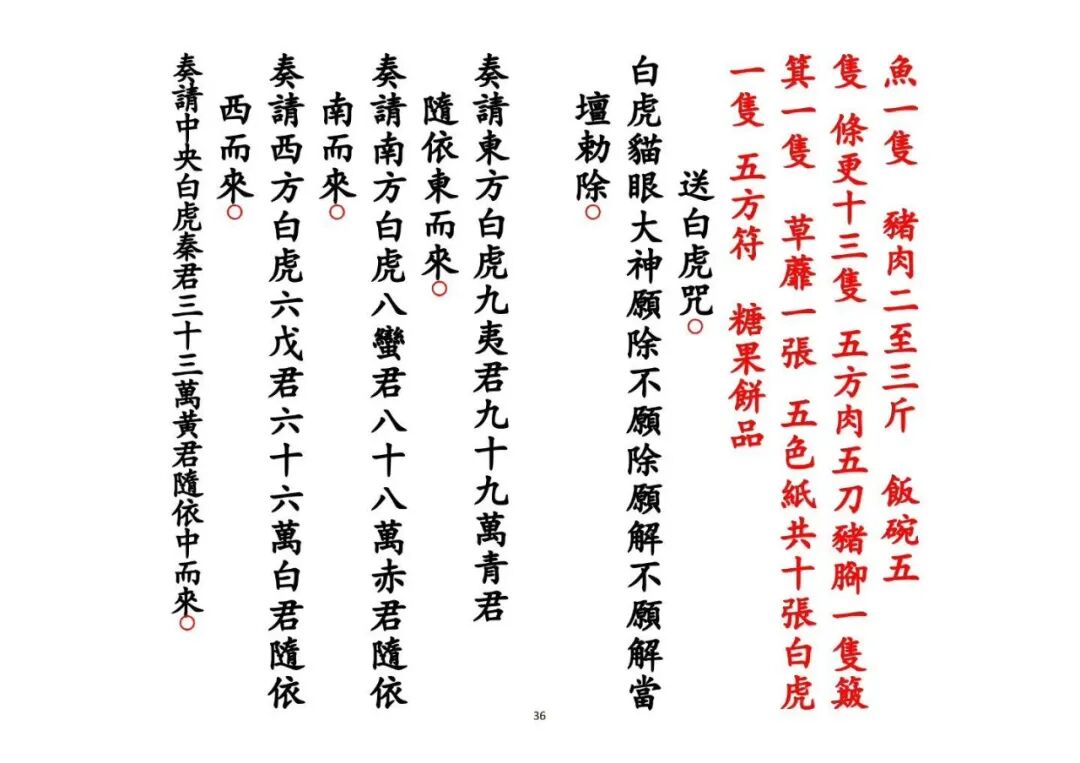 魚一隻 豬肉二至三斤 飯碗五
隻 條更十三隻 五方肉五刀豬腳一隻簸
箕一隻 草蘼一張 五色紙共十張白虎
一隻 五方符 糖果餅品
送白虎咒○
白虎貓眼大神願除不願除願解不願解當
壇勅除○
奏請東方白虎九夷君九十九萬青君
隨依東而來○
奏請南方白虎八蠻君八十八萬赤君隨依
南而來○
奏請西方白虎六戊君六十六萬白君隨依
西而來○
奏請中央白虎秦君三十三萬黃君隨依中而來○
36